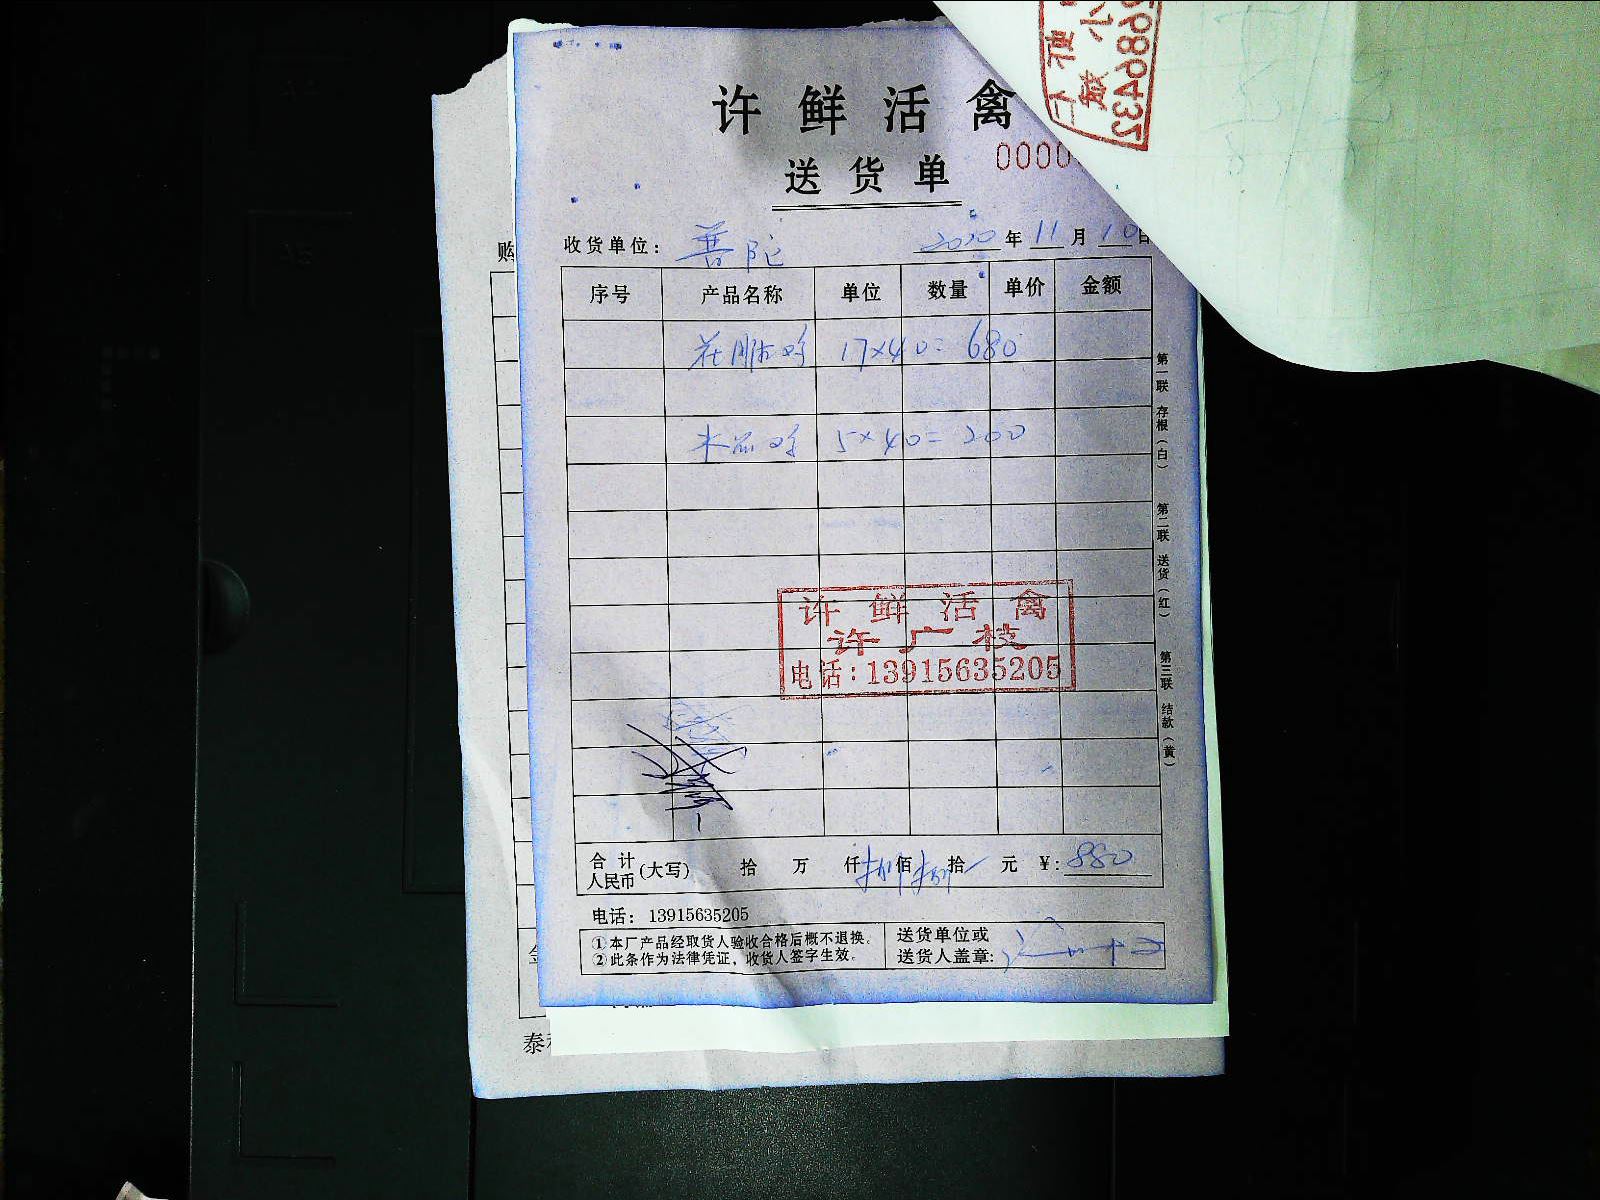 许鲜活禽
送货单
0000
收货单位：普陀 2020年11月10日
序号 产品名称 单位 数量 单价 金额
17×40=680
5×40=200
许鲜活禽
许广枝
电话：13915635205
合计人民币(大写) 拾 万 仟 捌佰 捌拾 元 ¥：880
电话：13915635205
①本厂产品经取货人验收合格后概不退换。
②此条作为法律凭证，收货人签字生效。
送货单位或
送货人盖章：
第一联 存根（白） 第二联 送货（红） 第三联 结款（黄）
购
泰